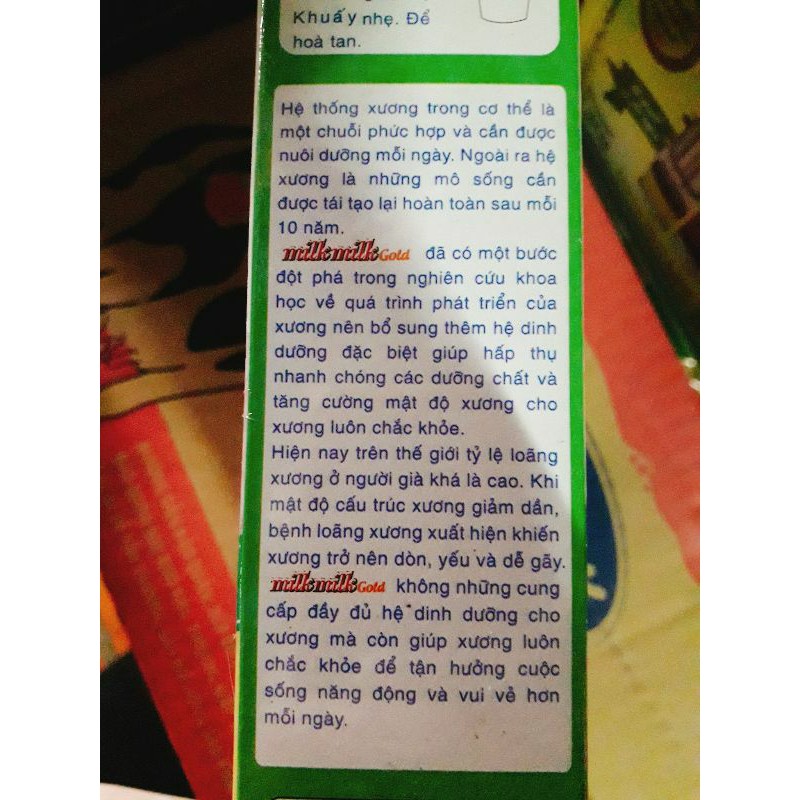 Khuấy nhẹ. Để
hoà tan.
Hệ thống xương trong cơ thể là
một chuỗi phức hợp và cần được
nuôi dưỡng mỗi ngày. Ngoài ra hệ
xương là những mô sống cần
được tái tạo lại hoàn toàn sau mỗi
10 năm.
milkmilk Gold đã có một bước
đột phá trong nghiên cứu khoa
học về quá trình phát triển của
xương nên bổ sung thêm hệ dinh
dưỡng đặc biệt giúp hấp thụ
nhanh chóng các dưỡng chất và
tăng cường mật độ xương cho
xương luôn chắc khỏe.
Hiện nay trên thế giới tỷ lệ loãng
xương ở người già khá là cao. Khi
mật độ cấu trúc xương giảm dần,
bệnh loãng xương xuất hiện khiến
xương trở nên dòn, yếu và dễ gãy.
milkmilk Gold không những cung
cấp đầy đủ hệ dinh dưỡng cho
xương mà còn giúp xương luôn
chắc khỏe để tận hưởng cuộc
sống năng động và vui vẻ hơn
mỗi ngày.